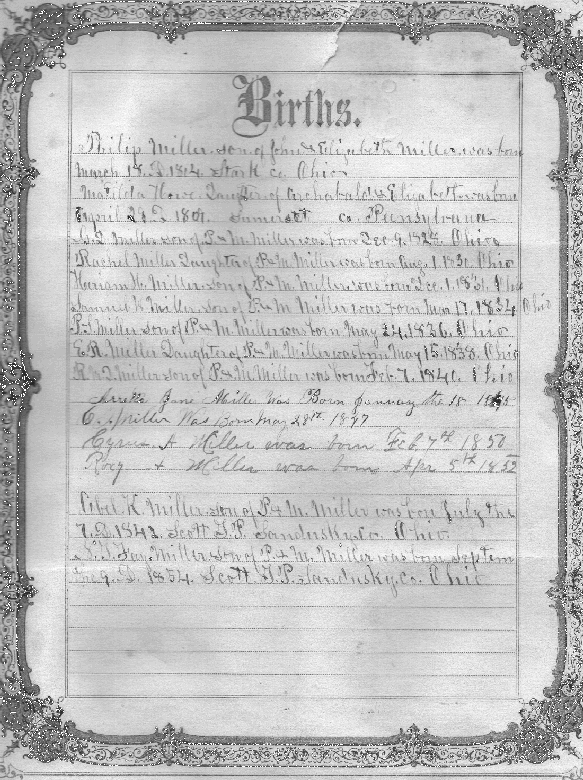 Births.
Philip Miller son of John & Elizabeth Miller was born
March 18 D 1804 Stark co Ohio
Matilda Howe Daughter of Archabald & Elizabeth was born
April D 1801 Somerset co Pensylvana
Miller son of P & M Miller was born Dec 9, 1828. Ohio
Rachel Miller Daughter of P & M Miller was born Aug 1, 1830, Ohio
Hariam Miller son of P & M Miller was born Dec 1, 1831, Ohio
Samuel Miller son of P & M Miller was born Mar 17, 1834 Ohio
P. Miller son of P & M Miller was born May 24, 1836, Ohio
E. R. Miller Daughter of P & M Miller was born May 15, 1838, Ohio
Miller son of P & M Miller was born Feb 7, 1840, Ohio
Jane Miller Was Born January the 18
C. Miller Was Born May 28th
Cyrus A Miller was born Feb 7th 1850
Roey A Miller was born Apr 5th 1852
Abel K. Miller son of P & M. Miller was born July the
7. D 1842 Scott T.P Sandusky Co. Ohio
Miller son of P & M. Miller was born Septem
the 9. D. 1854. Scott T.P. Sandusky, co. Ohio